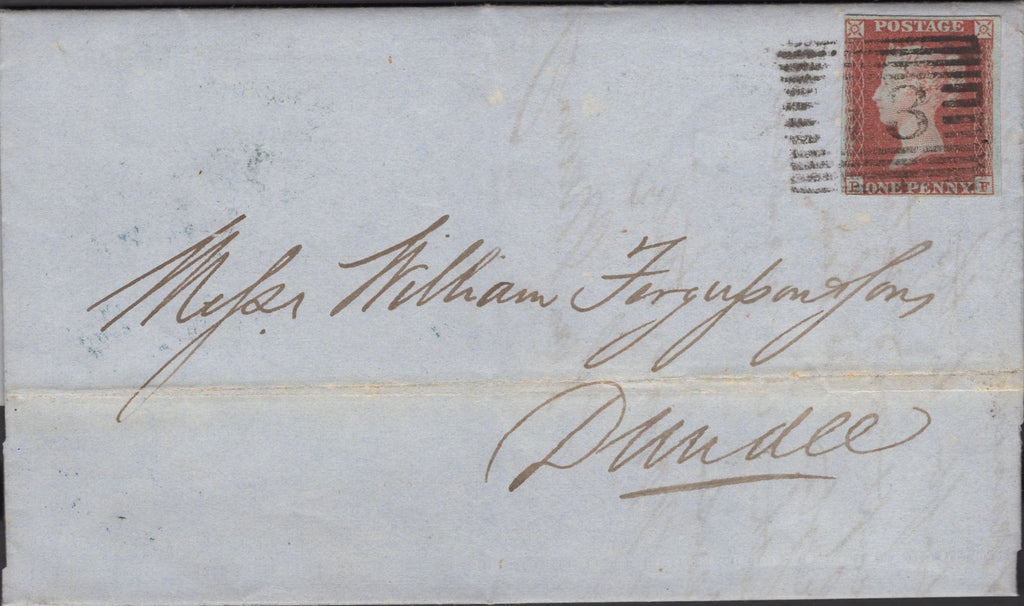 POSTAGE
3
P ONE PENNY F
Messrs William Ferguson & Sons
Dundee